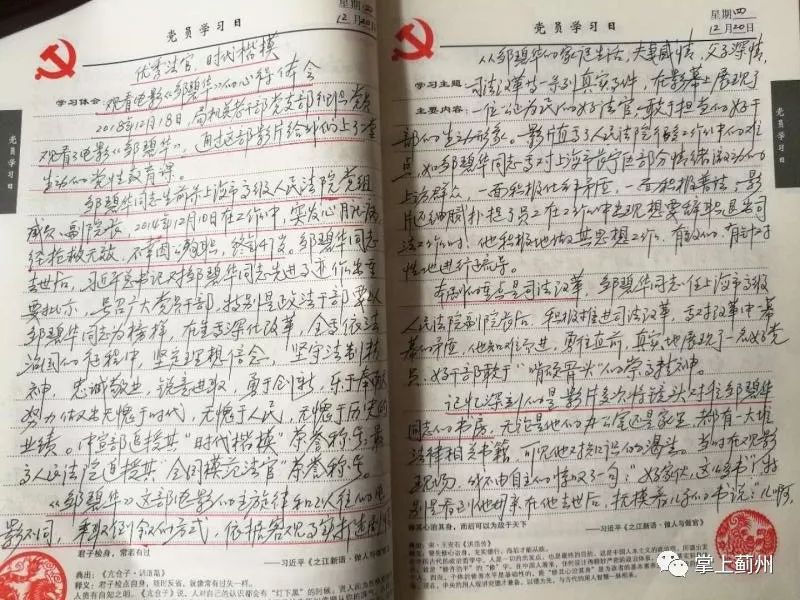 党员学习日
星期四
12月20日
优秀法官,时代楷模
学习体会:观看电影《邹碧华》的心得体会
2018年12月18日,局机关党支部组织党员
观看了电影《邹碧华》,通过这部影片给我们上了一堂
生动的党性教育课。
邹碧华同志生前系上海市高级人民法院党组
成员、副院长。2014年12月10日在工作中,突发心脏病,
经抢救无效,不幸因公殉职,终年47岁。邹碧华同志
去世后,习近平总书记对邹碧华同志先进事迹作出重
要批示,号召广大党员干部,特别是政法干部要以
邹碧华同志为榜样,在全面深化改革,全面依法
治国的征程中,坚定理想信念,坚守法治精
神,忠诚敬业,锐意进取,勇于创新,乐于奉献,
努力做出无愧于时代,无愧于人民,无愧于历史的
业绩。中宣部追授其“时代楷模”荣誉称号,最
高人民法院追授其“全国模范法官”荣誉称号。
《邹碧华》这部电影的主旋律和以往的电
影不同,采取倒叙的方式,依据客观事实
君子检身,常若有过
——习近平《之江新语·做人与做官》
典出:《亢仓子·训道篇》
党员学习日
党员学习日
星期四
12月20日
从邹碧华的家庭生活,夫妻感情,父子深情,
学习主题:司法改革等一系列真实事件,在影幕上展现了
主要内容:一位公正为民的好法官,敢于担当的好干
部的生动形象。影片直击了人民法院工作中的难
点,如邹碧华同志面对上海市长宁区部分情绪激动的
上访群众,一面积极化解矛盾,一面积极普法;影
片还细腻扑捉了员工在工作中出现想要辞职退出司
法工作时,他积极地做其思想工作,有效的,有针对
性地进行疏导。
本片的重点是司法改革,邹碧华同志任上海市高级
人民法院副院长后,积极推进司法改革,面对改革中
的矛盾,他知难而进,勇往直前,真实地展现了一名好党
员,好干部敢于“啃硬骨头”的崇高精神。
记忆深刻的是影片多次将镜头对准邹碧华
同志的书房,无论是他的办公室还是家里,都有一大堆
法律相关书籍,可见他对知识的渴求。当时在观影
现场,我不由自主的惊叹了一句:“好家伙,这么多书”,特
别是看到他母亲在他去世后,抚摸着儿子的书说:“儿啊,
修其心治其身,而后可以为政于天下
——习近平《之江新语·做人与做官》
党员学习日
掌上蓟州